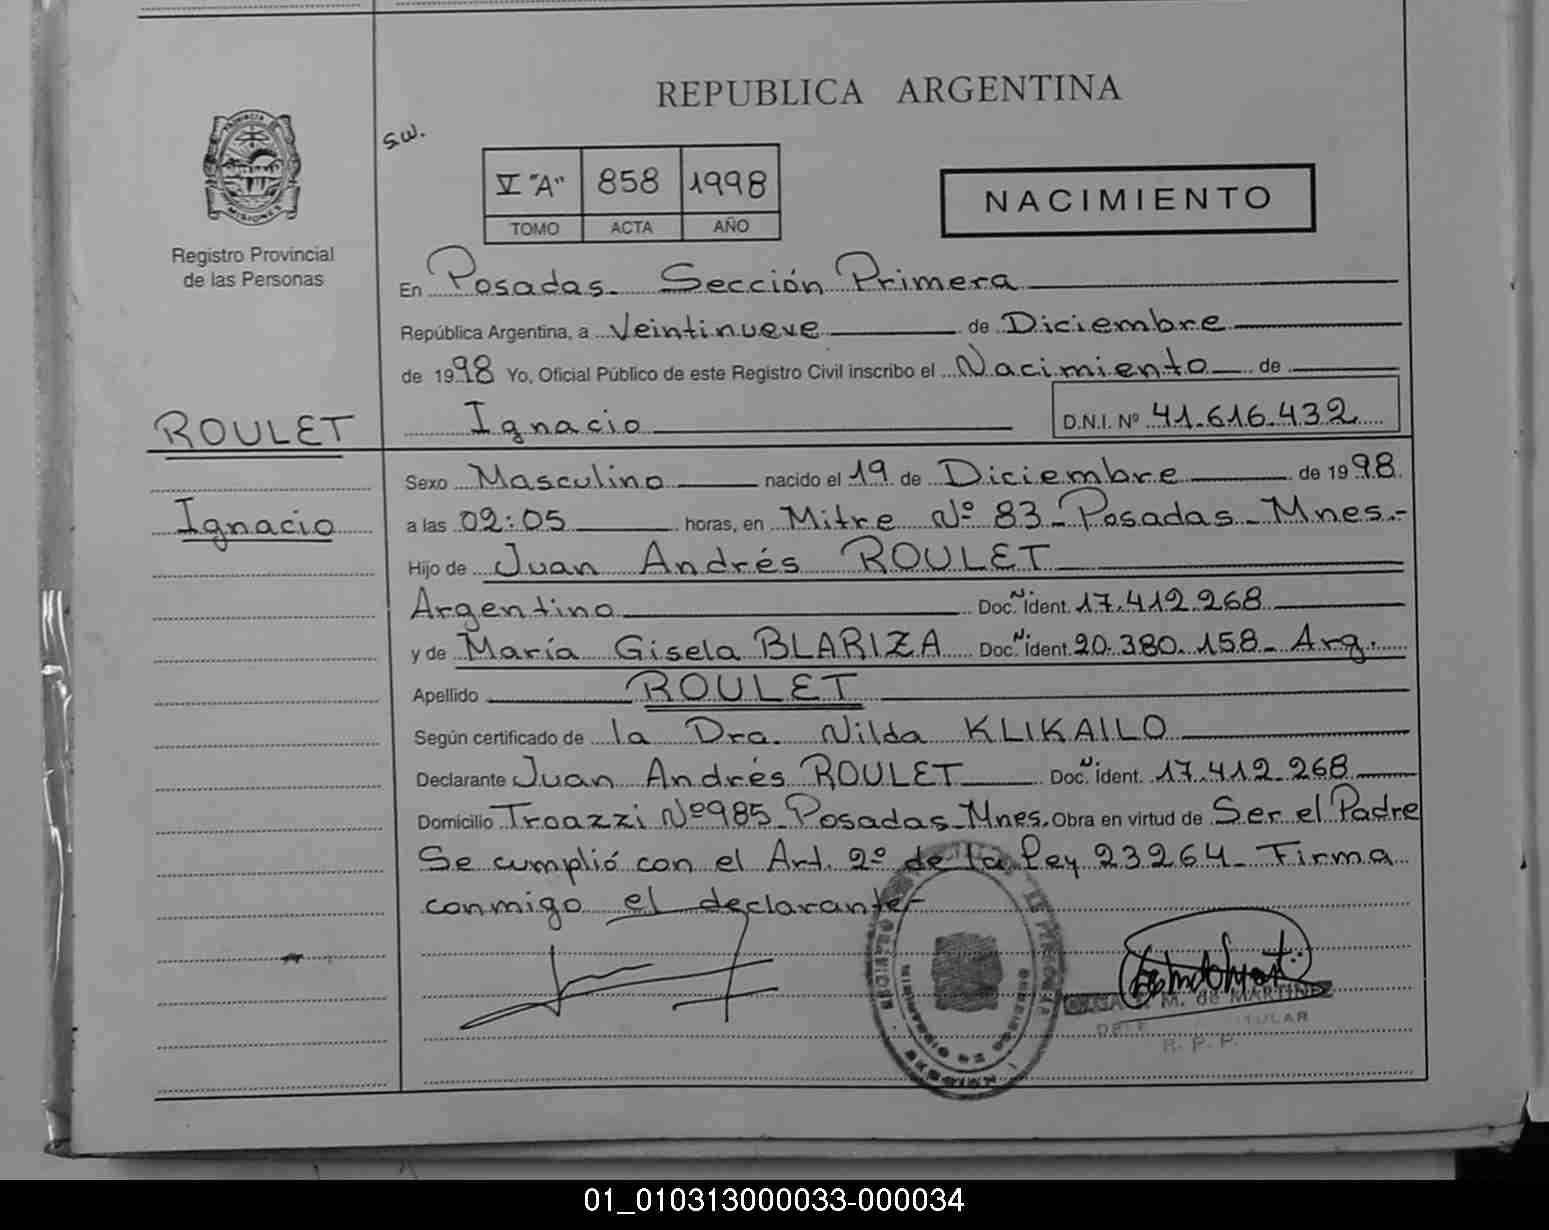 REPUBLICA ARGENTINA
PROVINCIA DE
MISIONES
Registro Provincial
de las Personas
s.w.
V "A" 858 1998
TOMO ACTA AÑO
NACIMIENTO
En Posadas - Sección Primera
República Argentina, a Veintinueve de Diciembre
de 1998 Yo, Oficial Público de este Registro Civil inscribo el Nacimiento de
ROULET
Ignacio D.N.I. Nº 41.616.432
Sexo Masculino nacido el 19 de Diciembre de 1998.
Ignacio
a las 02:05 horas, en Mitre Nº 83 - Posadas - Mnes.-
Hijo de Juan Andrés ROULET
Argentino Doc. N ident. 17.412.268
y de María Gisela BLARIZA Doc. N ident. 20.380.158 - Arg.
Apellido ROULET
Según certificado de la Dra. Nilda KLIKAILO
Declarante Juan Andrés ROULET Doc. N ident. 17.412.268
Domicilio Troazzi Nº 985 - Posadas - Mnes. Obra en virtud de Ser el Padre
Se cumplió con el Art. 2º de la Ley 23264 - Firma
conmigo el declarante -
M. de MARTINEZ
TITULAR
R. P. P.
01_010313000033-000034